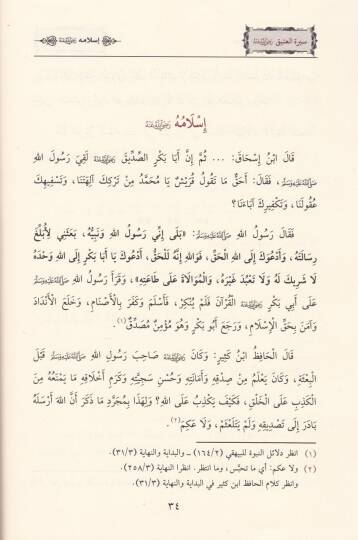 سيرة العتيق رَضِيَ اللَّهُ عَنْهُ
إسلامه رَضِيَ اللَّهُ عَنْهُ
إِسْلَامُهُ رَضِيَ اللَّهُ عَنْهُ
قَالَ ابْنُ إِسْحَاقَ: ... ثُمَّ إِنَّ أَبَا بَكْرٍ الصِّدِّيقَ رَضِيَ اللَّهُ عَنْهُ لَقِيَ رَسُولَ اللهِ
صَلَّى اللَّهُ عَلَيْهِ وَسَلَّمَ، فَقَالَ: أَحَقٌّ مَا تَقُولُ قُرَيْشٌ يَا مُحَمَّدُ مِنْ تَرْكِكَ آلِهَتَنَا، وَتَسْفِيهِكَ
عُقُولَنَا، وَتَكْفِيرِكَ آبَاءَنَا؟
فَقَالَ رَسُولُ اللهِ صَلَّى اللَّهُ عَلَيْهِ وَسَلَّمَ: «بَلَى إِنِّي رَسُولُ اللهِ وَنَبِيُّهُ، بَعَثَنِي لِأُبَلِّغَ
رِسَالَتَهُ، وَأَدْعُوَكَ إِلَى اللهِ الْحَقِّ، فَوَاللهِ إِنَّهُ لَلْحَقُّ، أَدْعُوكَ يَا أَبَا بَكْرٍ إِلَى اللهِ وَحْدَهُ
لَا شَرِيكَ لَهُ وَلَا تَعْبُدَ غَيْرَهُ، وَالْمُوَالَاةَ عَلَى طَاعَتِهِ»، وَقَرَأَ رَسُولُ اللهِ صَلَّى اللَّهُ عَلَيْهِ وَسَلَّمَ
عَلَى أَبِي بَكْرٍ رَضِيَ اللَّهُ عَنْهُ الْقُرْآنَ فَلَمْ يُنْكِرْ، فَأَسْلَمَ وَكَفَرَ بِالْأَصْنَامِ، وَخَلَعَ الْأَنْدَادَ
وَآمَنَ بِحَقِّ الْإِسْلَامِ، وَرَجَعَ أَبُو بَكْرٍ وَهُوَ مُؤْمِنٌ مُصَدِّقٌ(١).
قَالَ الْحَافِظُ ابْنُ كَثِيرٍ: وَكَانَ رَضِيَ اللَّهُ عَنْهُ صَاحِبَ رَسُولِ اللهِ صَلَّى اللَّهُ عَلَيْهِ وَسَلَّمَ قَبْلَ
الْبِعْثَةِ، وَكَانَ يَعْلَمُ مِنْ صِدْقِهِ وَأَمَانَتِهِ وَحُسْنِ سَجِيَّتِهِ وَكَرَمِ أَخْلَاقِهِ مَا يَمْنَعُهُ مِنَ
الْكَذِبِ عَلَى الْخَلْقِ، فَكَيْفَ يَكْذِبُ عَلَى اللهِ؟ وَلِهَذَا بِمُجَرَّدِ مَا ذَكَرَ أَنَّ اللهَ أَرْسَلَهُ
بَادَرَ إِلَى تَصْدِيقِهِ وَلَمْ يَتَلَعْثَمْ، وَلَا عَكَمَ(٢).
(١) انظر دلائل النبوة للبيهقي (١٦٤/٢) – والبداية والنهاية (٣١/٣).
(٢) ولا عكم: أي ما تحبَّس، وما انتظر. انظرا النهاية (٢٥٨/٣).
وانظر كلام الحافظ ابن كثير في البداية والنهاية (٣١/٣).
٣٤